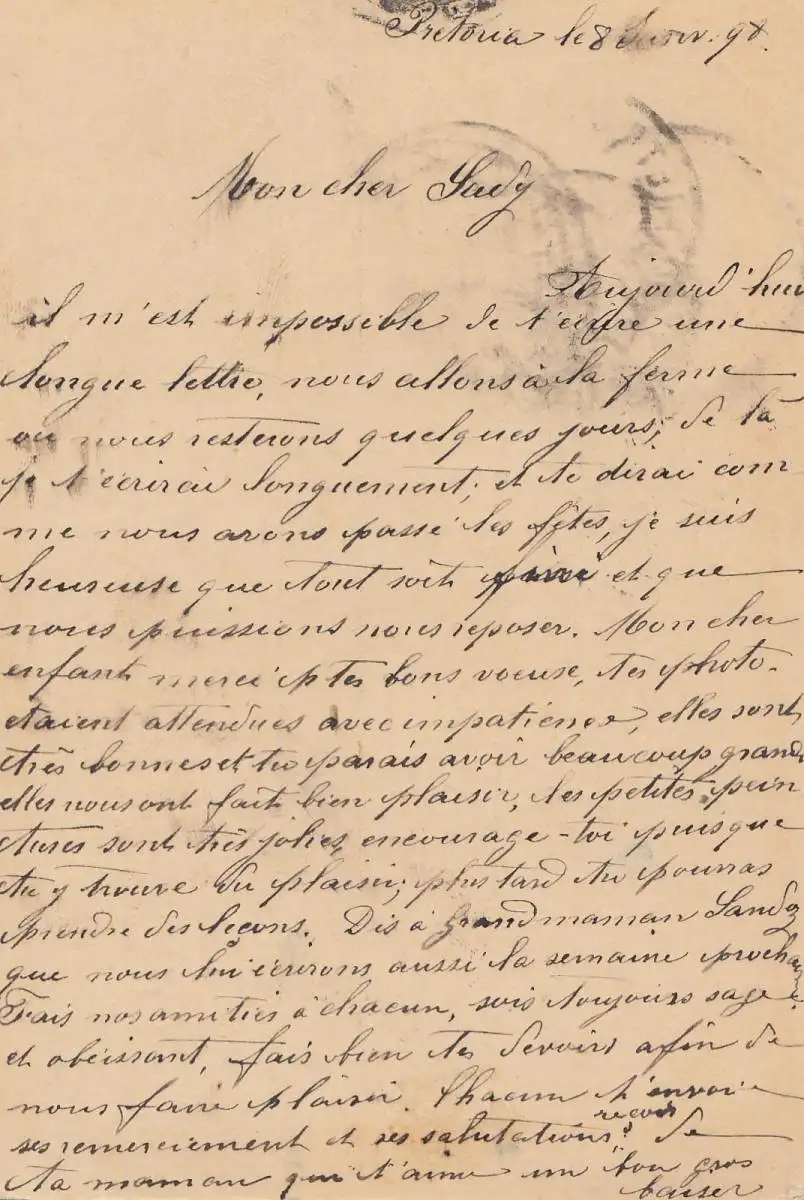 Pretoria le 8 Janv. 98.
Mon cher Sady
Aujourd'hui
il m'est impossible de t'écrire une
longue lettre, nous allons à la ferme
ou nous resterons quelques jours, de là
je t'écrirai longuement, et te dirai com
me nous avons passé les fêtes, je suis
heureuse que tout soit fini et que
nous puissions nous reposer. Mon cher
enfant merci p tes bons voeuse, tes photo.
etaient attendues avec impatience, elles sont
très bonnes et tu parais avoir beaucoup grandi
elles nous ont fait bien plaisir, les petites pein
tures sont très jolies, encourage-toi puisque
tu y trouve du plaisir; plus tard tu pourras
prendre des leçons. Dis à Grandmaman Sandoz
que nous lui écrirons aussi la semaine prochaine.
Fais nos amitiés à chacun, sois toujours sage
et obéissant, fais bien tes devoirs afin de
nous faire plaisir. Chacun t'envoie
ses remerciement et ses salutations, reçois de
ta maman qui t'aime un bon gros
baiser